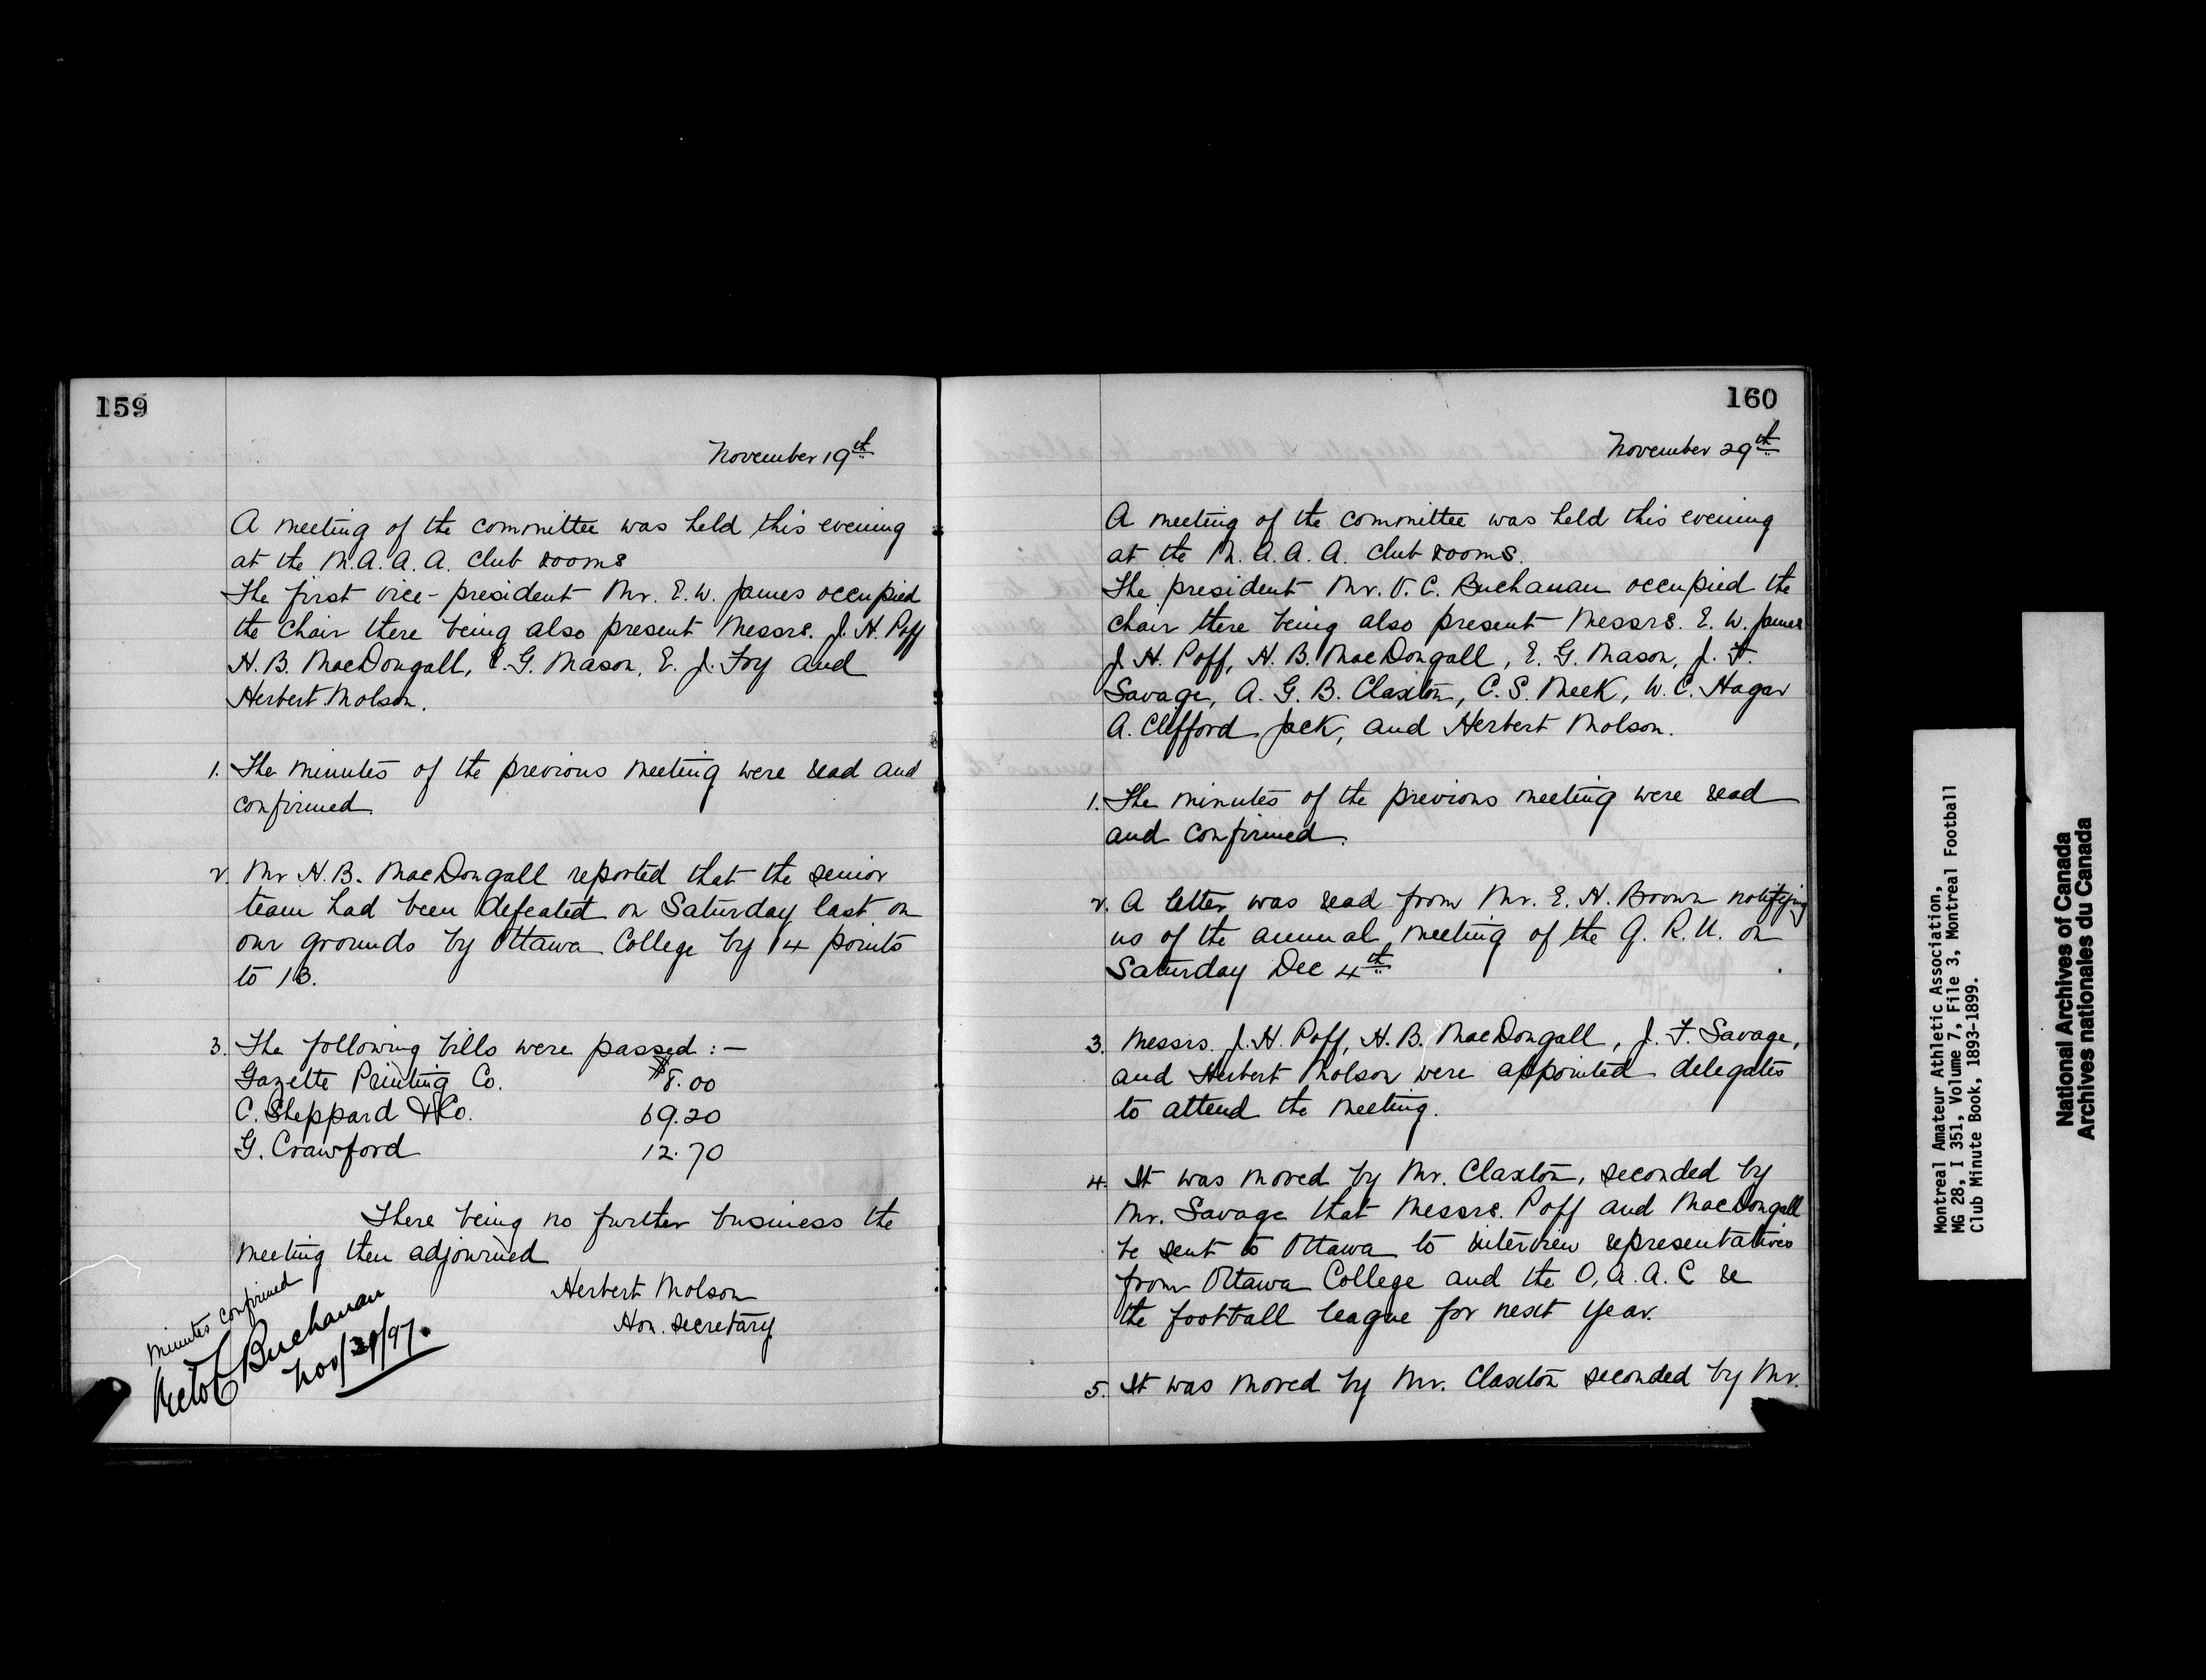 159
November 19th
A meeting of the committee was held this evening
at the M.A.A.A. club rooms
The first vice-president Mr. E. W. James occupied
the chair there being also present Messrs. J. H. Poff
H. B. MacDongall, E. G. Mason, E. J. Foy and
Herbert Molson.
1. The minutes of the previous meeting were read and
confirmed
2. Mr H. B. MacDongall reported that the senior
team had been defeated on Saturday last on
our grounds by Ottawa College by 14 points
to 13.
3. The following bills were passed :—
Gazette Printing Co. $8.00
C. Sheppard & Co. 69.20
G. Crawford 12.70
There being no further business the
meeting then adjourned
Herbert Molson
Hon. Secretary
Minutes confirmed
Victor C Buchanan
Nov/29/97.
160
November 29th
A meeting of the committee was held this evening
at the M.A.A.A. club rooms.
The president Mr. V. C. Buchanan occupied the
chair there being also present Messrs. E. W. James
J. H. Poff, H. B. MacDongall, E. G. Mason, J. F.
Savage, A. G. B. Claxton, C. S. Meek, W. C. Hagar
A. Clifford Jack, and Herbert Molson.
1. The minutes of the previous meeting were read
and confirmed.
2. A letter was read from Mr. E. H. Brown notifying
us of the annual meeting of the Q. R. U. on
Saturday Dec 4th
3. Messrs. J. H. Poff, H. B. MacDongall, J. F. Savage,
and Herbert Molson were appointed delegates
to attend the meeting.
4. It was moved by Mr. Claxton, seconded by
Mr. Savage that Messrs. Poff and MacDongall
be sent to Ottawa to interview representatives
from Ottawa College and the O.A.A.C re
the football league for next year.
5. It was moved by Mr. Claxton seconded by Mr.
Montreal Amateur Athletic Association,
MG 28, I 351, Volume 7, File 3, Montreal Football
Club Minute Book, 1893-1899.
National Archives of Canada
Archives nationales du Canada